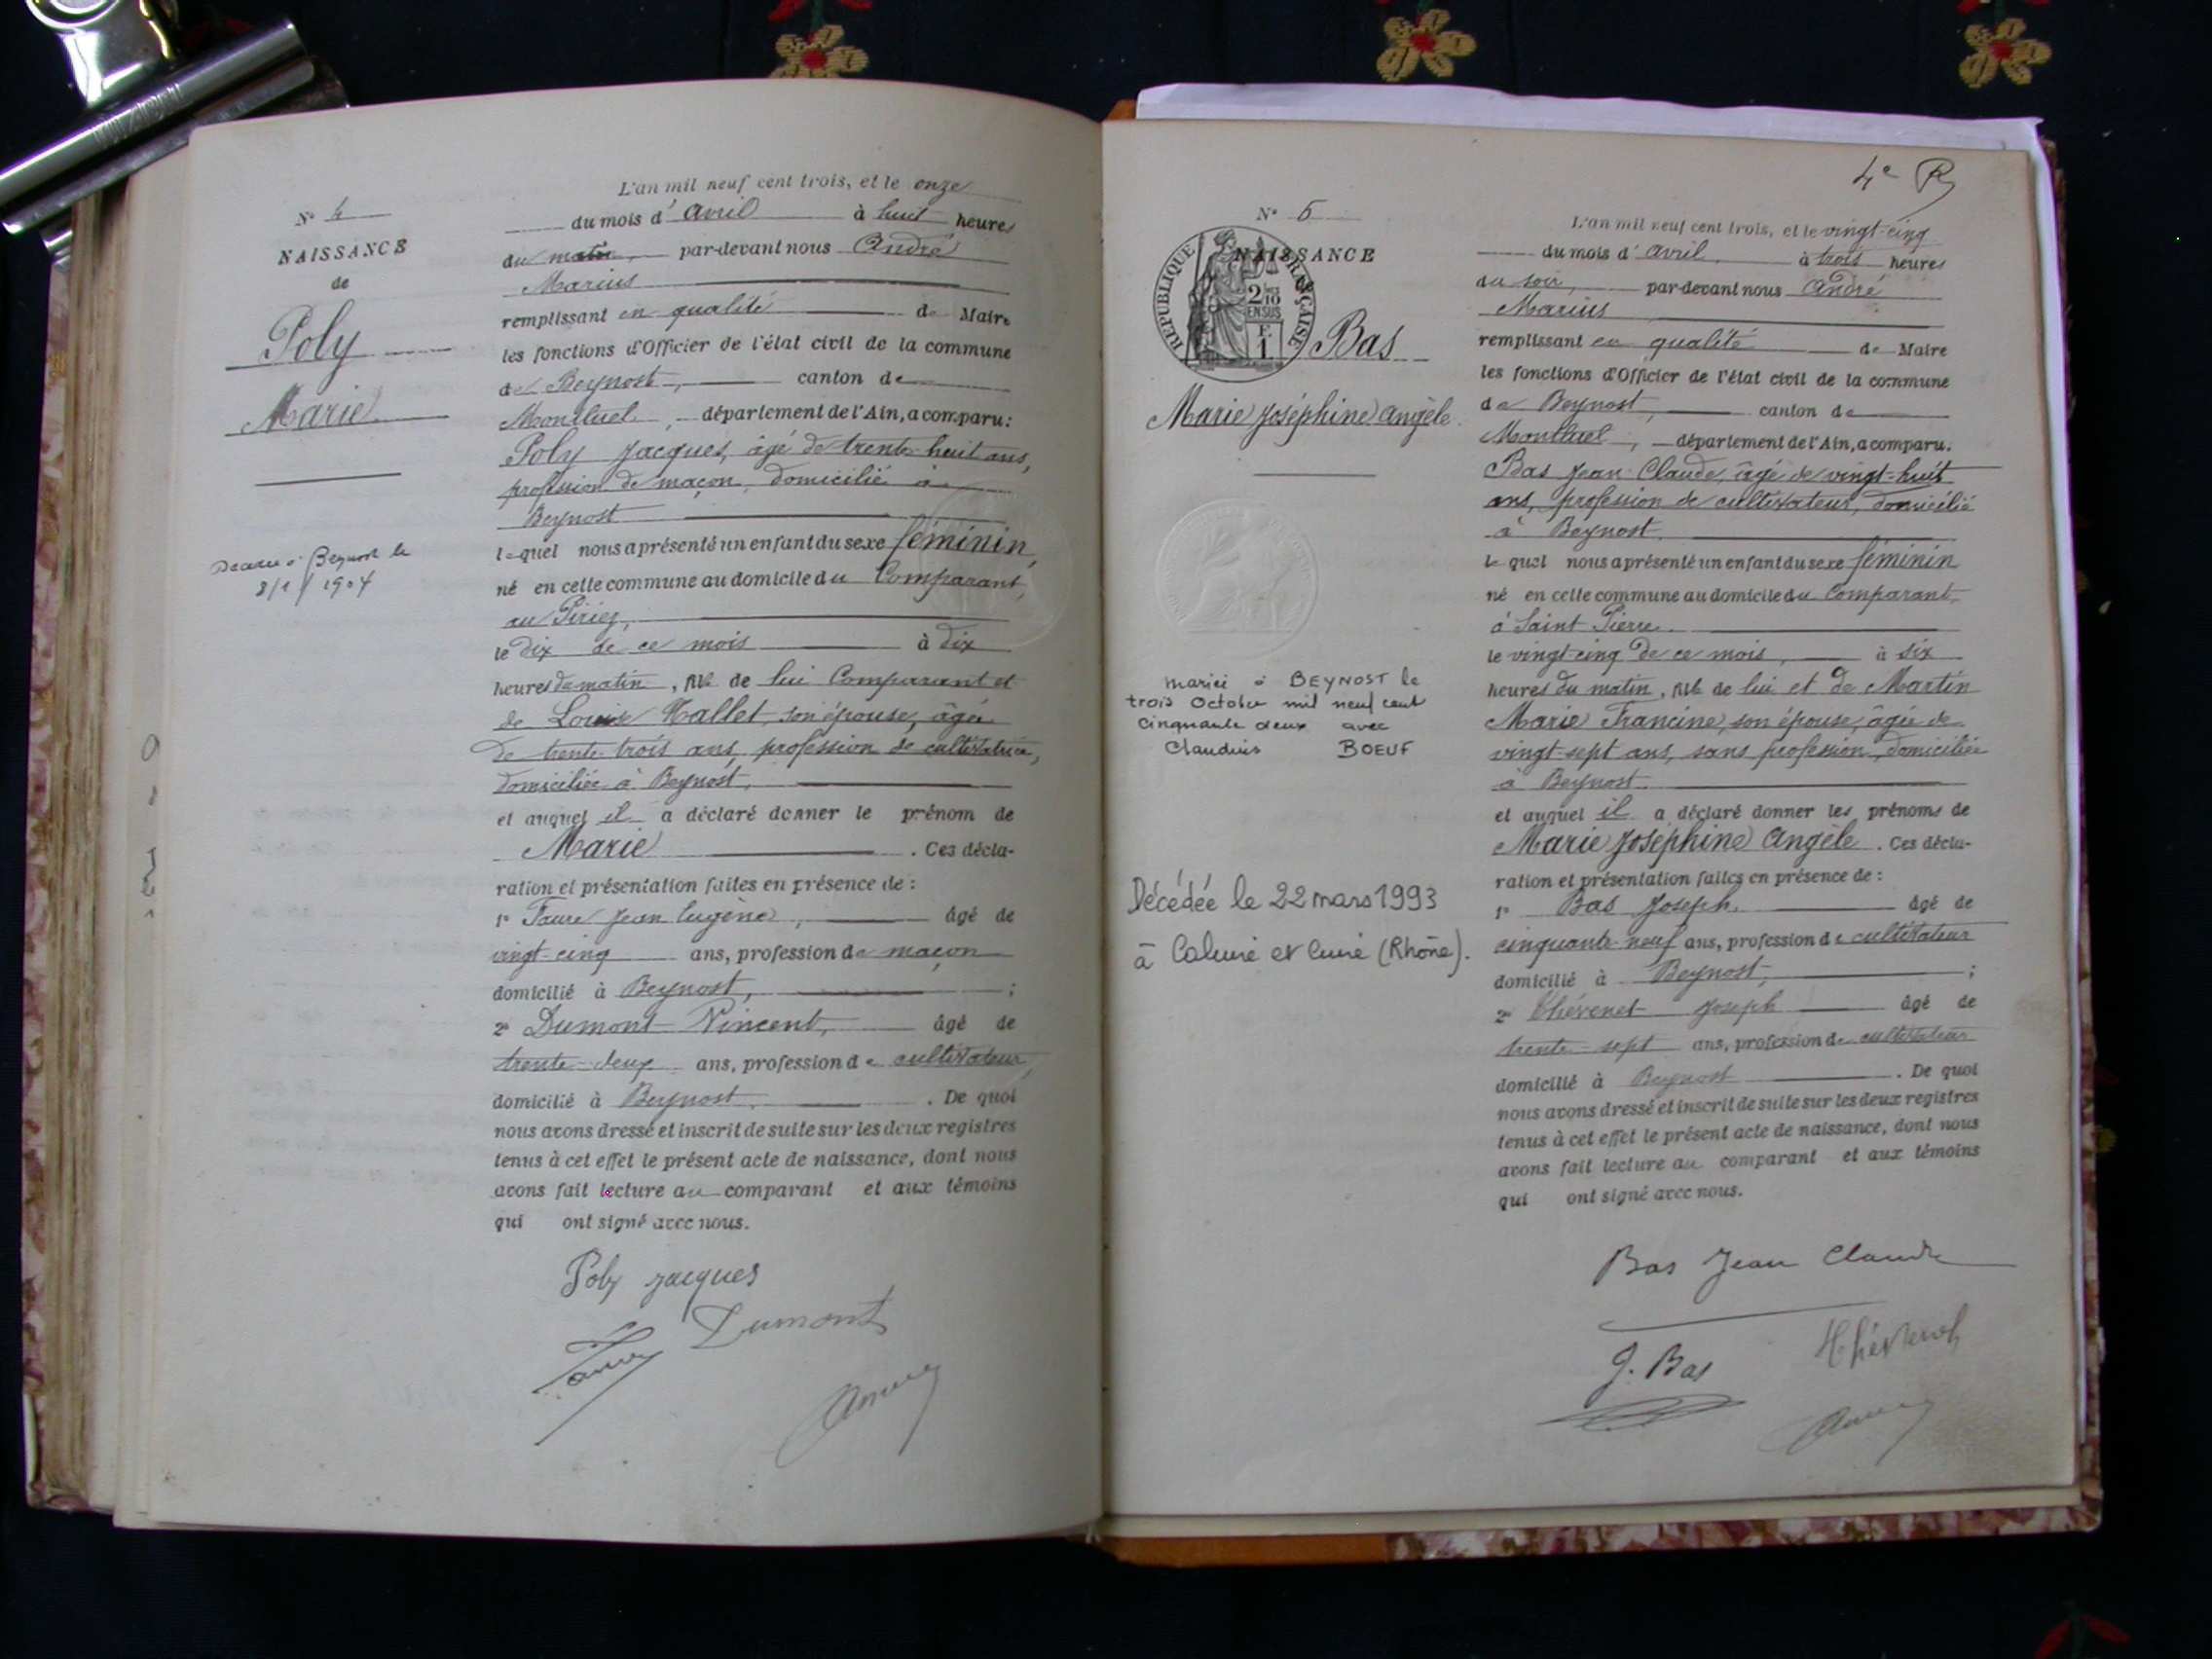 N° 4
NAISSANCE
de
Poly
Marie
Beynost le
1904
L'an mil neuf cent trois, et le onze
du mois d'avril à huit heures
du matin, par-devant nous André
Marius
remplissant en qualité de Maire
les fonctions d'Officier de l'état civil de la commune
de Beynost, canton de
Montluel, département de l'Ain, a comparu:
Poly Jacques, âgé de trente-huit ans,
profession de maçon, domicilié à
Beynost
lequel nous a présenté un enfant du sexe féminin,
né en cette commune au domicile du Comparant,
au
le dix de ce mois à dix
heures du matin, fille de lui Comparant et
de Louise Mallet, son épouse, âgée
de trente-trois ans, profession de cultivatrice,
domiciliée à Beynost,
et auquel il a déclaré donner le prénom de
Marie. Ces décla-
ration et présentation faites en présence de :
1° Faure Jean Eugène, âgé de
vingt-cinq ans, profession de maçon
domicilié à Beynost, ;
2° Dumont Vincent, âgé de
trente-deux ans, profession de cultivateur,
domicilié à Beynost. De quoi
nous avons dressé et inscrit de suite sur les deux registres
tenus à cet effet le présent acte de naissance, dont nous
avons fait lecture au comparant et aux témoins
qui ont signé avec nous.
Poly Jacques
Dumont
4e
N° 5
NAISSANCE
RÉPUBLIQUE FRANÇAISE
2/10 EN SUS
F. 1
Bas
Marie Joséphine Angèle
mariée à BEYNOST le
trois Octobre mil neuf cent
cinquante deux avec
Claudius BOEUF
Décédée le 22 mars 1993
à Caluire et Cuire (Rhône).
L'an mil neuf cent trois, et le vingt-cinq
du mois d'avril, à trois heures
du soir, par-devant nous André
Marius
remplissant en qualité de Maire
les fonctions d'Officier de l'état civil de la commune
de Beynost, canton de
Montluel, département de l'Ain, a comparu.
Bas Jean Claude, âgé de vingt-huit
ans, profession de cultivateur, domicilié
à Beynost.
lequel nous a présenté un enfant du sexe féminin
né en cette commune au domicile du Comparant,
à Saint Pierre.
le vingt-cinq de ce mois, à six
heures du matin, fille de lui et de Martin
Marie Francine, son épouse, âgée de
vingt-sept ans, sans profession, domiciliée
à Beynost.
et auquel il a déclaré donner les prénoms de
Marie Joséphine Angèle. Ces décla-
ration et présentation faites en présence de :
1° Bas Joseph, âgé de
cinquante-neuf ans, profession de cultivateur
domicilié à Beynost, ;
2° Thévenet Joseph âgé de
trente-sept ans, profession de cultivateur
domicilié à Beynost. De quoi
nous avons dressé et inscrit de suite sur les deux registres
tenus à cet effet le présent acte de naissance, dont nous
avons fait lecture au comparant et aux témoins
qui ont signé avec nous.
Bas Jean Claude
J. Bas